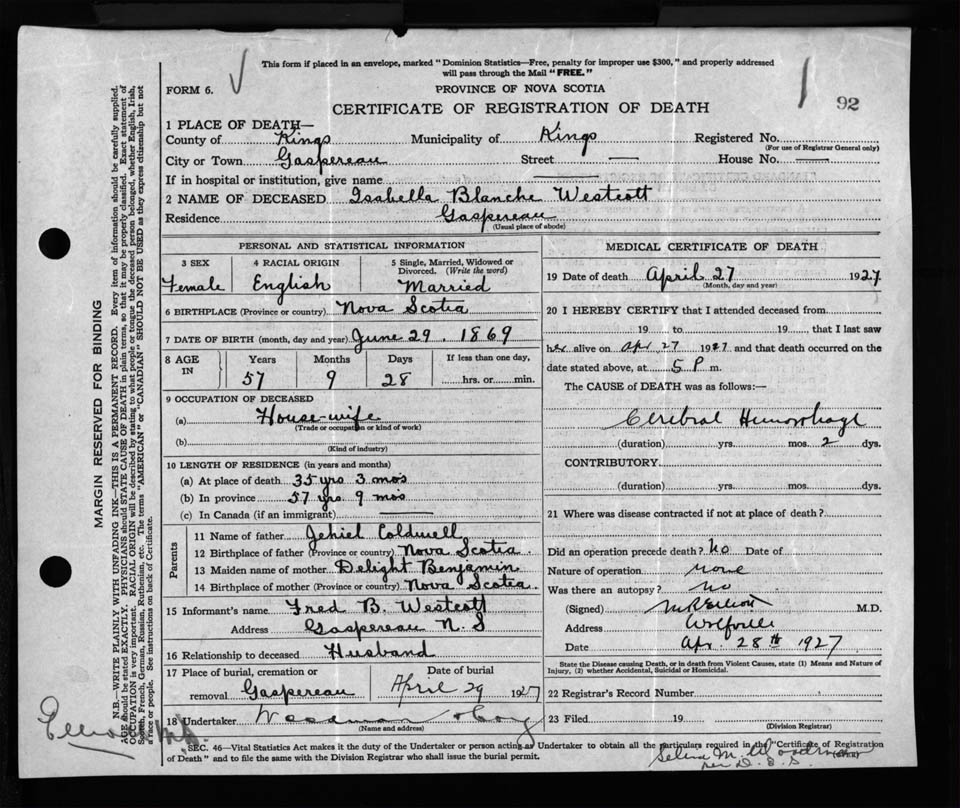 This form if placed in an envelope, marked "Dominion Statistics—Free, penalty for improper use $300," and properly addressed
will pass through the Mail "FREE."
FORM 6.
PROVINCE OF NOVA SCOTIA
92
CERTIFICATE OF REGISTRATION OF DEATH
1 PLACE OF DEATH—
County of Kings Municipality of Kings Registered No.
(For use of Registrar General only)
City or Town Gaspereau Street — House No. —
If in hospital or institution, give name
2 NAME OF DECEASED Isabella Blanche Westcott
Residence Gaspereau
(Usual place of abode)
PERSONAL AND STATISTICAL INFORMATION
3 SEX 4 RACIAL ORIGIN 5 Single, Married, Widowed or Divorced. (Write the word)
Female English Married
6 BIRTHPLACE (Province or country) Nova Scotia
7 DATE OF BIRTH (month, day and year) June 29. 1869
8 AGE IN Years Months Days If less than one day,
57 9 28 hrs. or min.
9 OCCUPATION OF DECEASED
(a) House-wife
(Trade or occupation or kind of work)
(b)
(Kind of industry)
10 LENGTH OF RESIDENCE (in years and months)
(a) At place of death 35 yrs 3 mos
(b) In province 57 yrs 9 mos
(c) In Canada (if an immigrant) —
Parents
11 Name of father Jehiel Coldwell
12 Birthplace of father (Province or country) Nova Scotia
13 Maiden name of mother Delight Benjamin
14 Birthplace of mother (Province or country) Nova Scotia
15 Informant's name Fred B. Westcott
Address Gaspereau N.S
16 Relationship to deceased Husband
17 Place of burial, cremation or removal Gaspereau Date of burial April 29 1927
18 Undertaker Woodman
(Name and address)
MEDICAL CERTIFICATE OF DEATH
19 Date of death April 27 1927
(Month, day and year)
20 I HEREBY CERTIFY that I attended deceased from
19 to 19, that I last saw
her alive on Apr. 27 1927 and that death occurred on the
date stated above, at 5 P m.
The CAUSE of DEATH was as follows:—
Cerebral Hemorrhage
(duration) yrs. mos. 2 dys.
CONTRIBUTORY
(duration) yrs. mos. dys.
21 Where was disease contracted if not at place of death?
Did an operation precede death? No Date of
Nature of operation none
Was there an autopsy? no
(Signed) M.D.
Address Wolfville
Date Apr. 28th 1927
State the Disease causing Death, or in death from Violent Causes, state (1) Means and Nature of
Injury, (2) whether Accidental, Suicidal or Homicidal.
22 Registrar's Record Number
23 Filed 19
(Division Registrar)
SEC. 46—Vital Statistics Act makes it the duty of the Undertaker or person acting as Undertaker to obtain all the particulars required in the "Certificate of Registration
of Death" and to file the same with the Division Registrar who shall issue the burial permit.
MARGIN RESERVED FOR BINDING
N.B.—WRITE PLAINLY WITH UNFADING INK—THIS IS A PERMANENT RECORD. Every item of information should be carefully supplied.
AGE should be stated EXACTLY. PHYSICIANS should STATE CAUSE OF DEATH in plain terms, so that it may be properly classified. Exact statement of
OCCUPATION is very important. RACIAL ORIGIN will be described by stating to what people or tongue the deceased person belonged, whether English, Irish,
Scotch, French, German, Russian, Ruthenian, etc. The terms "AMERICAN" or "CANADIAN" SHOULD NOT BE USED as they express citizenship but not
a race or people. See instructions on back of Certificate.